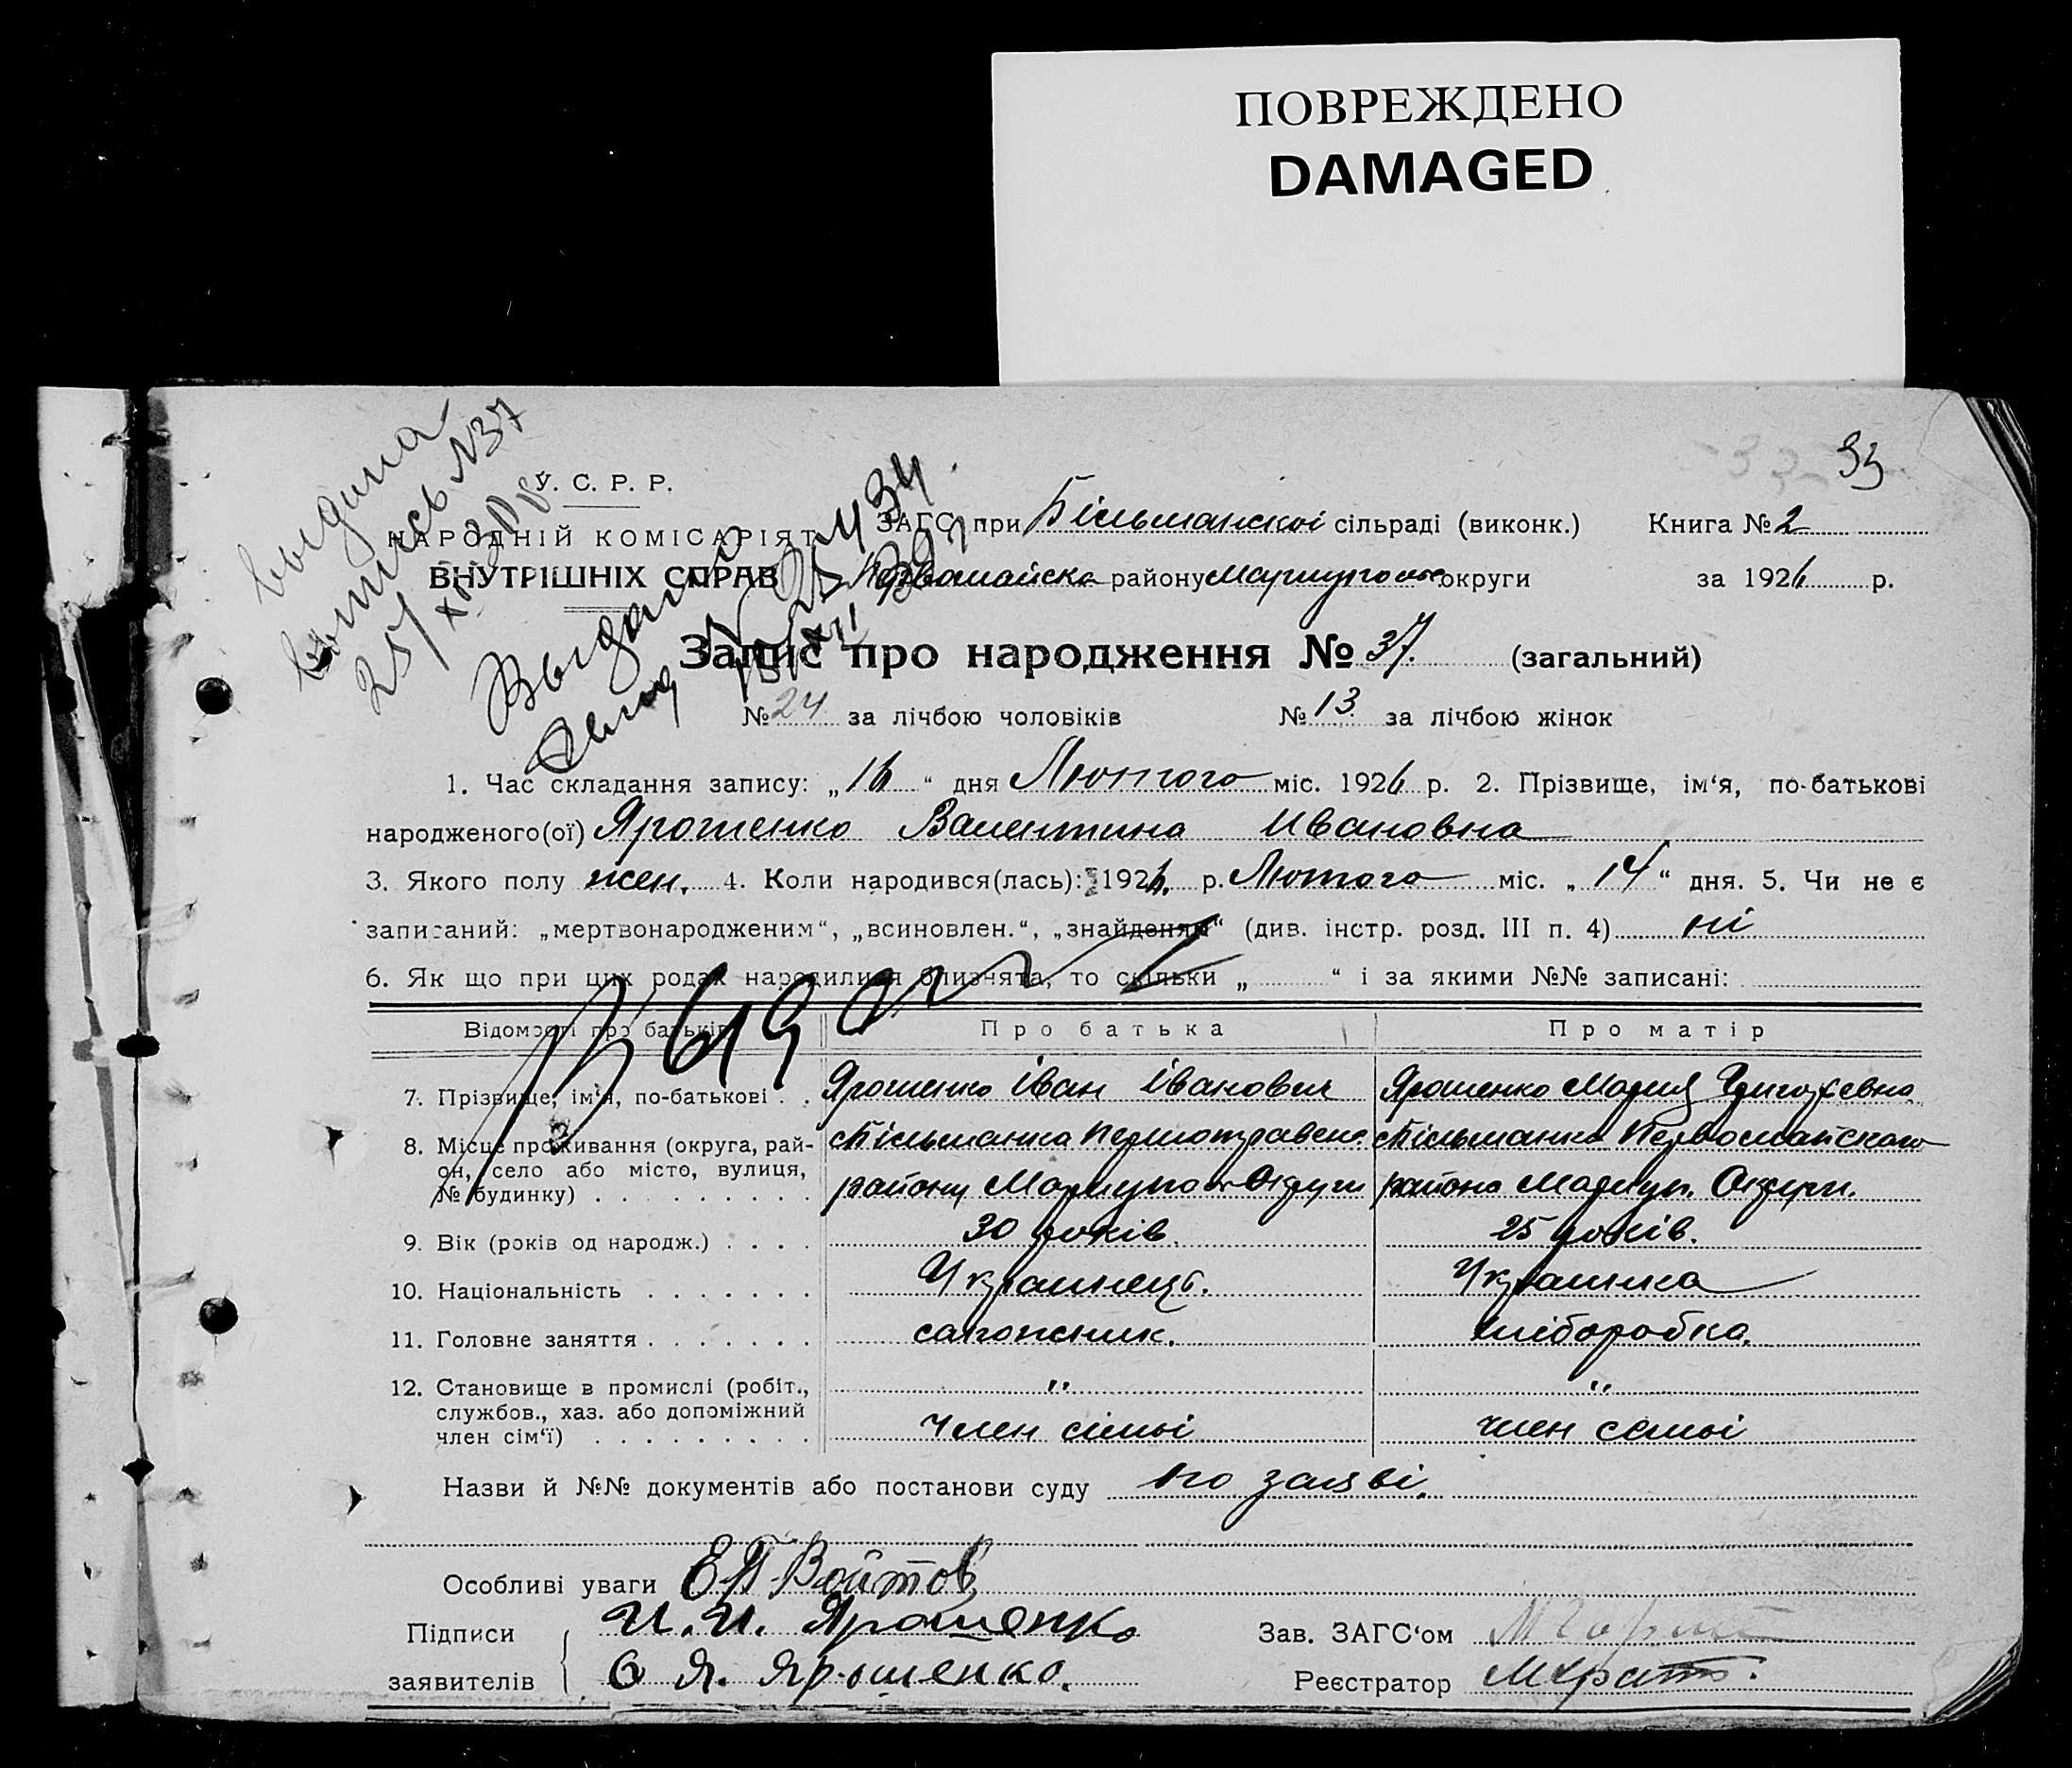 ПОВРЕЖДЕНО
DAMAGED
33
выдана
выпись №37
У. С. Р. Р.
НАРОДНІЙ КОМІСАРІЯТ
ВНУТРІШНІХ СПРАВ
ЗАГС при Більманскої сільраді (виконк.) Книга № 2
району округи за 1926 р.
Запис про народження № 37. (загальний)
№ 24 за лічбою чоловіків № 13 за лічбою жінок
1. Час складання запису: „16“ дня Лютого міс. 1926 р. 2. Прізвище, ім‘я, по-батькові
народженого(ої) Ярошенко Валентина Ивановна
3. Якого полу жен. 4. Коли народився(лась): 1926 р. Лютого міс. „14“ дня. 5. Чи не є
записаний: „мертвонародженим“, „всиновлен.“, „знайденям“ (див. інстр. розд. III п. 4) ні
6. Як що при цих родах народилися близнята, то скільки „ “ і за якими №№ записані:
Відомості про батьків Про батька Про матір
7. Прізвище, ім‘я, по-батькові . . Ярошенко Іван Іванович Ярошенко Мария Григорьевна
8. Місце проживання (округа, рай- с Більманка Першотравен. с Більманка Первомайского
он, село або місто, вулиця,
№ будинку) . . . . . . . . . . району Мариупол Округи района Мариуп. Округи.
9. Вік (років од народж.) . . . . 30 років 25 років.
10. Національність . . . . . . . Украинець. Украинка
11. Головне заняття . . . . . . . сапожник. хліборобка.
12. Становище в промислі (робіт., „ „
службов., хаз. або допоміжний
член сім‘ї) . . . . . . . . . член сімьі член семьі
Назви й №№ документів або постанови суду по заяві.
Особливі уваги Е П Войтов
Підписи И. И. Ярошенко Зав. ЗАГС‘ом
заявителів Я. Ярошенко. Реєстратор